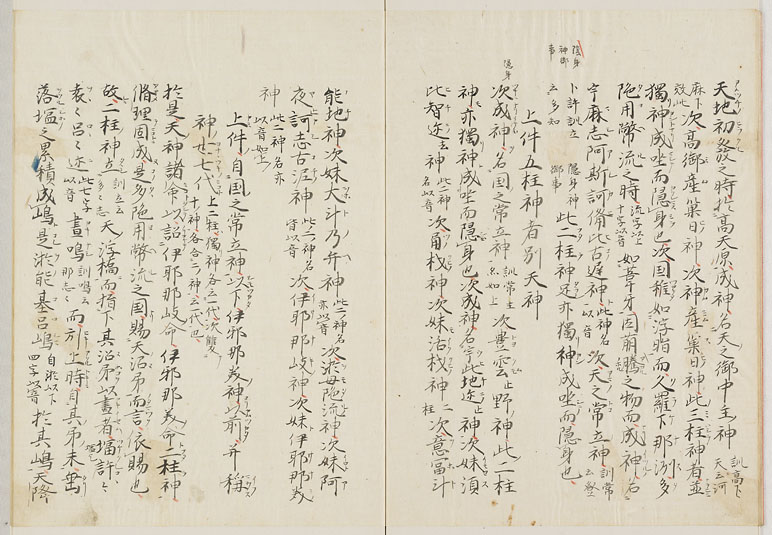 天地初發之時於高天原成神名天之御中主神訓高下天云阿
麻下效此次高御産巣日神次神産巣日神此三柱神者並
獨神成坐而隱身也次国稚如浮脂而久羅下那洲多
陁用幣流之時流字以上十字以音如葦牙因萌騰之物而成神名
宇麻志阿斯訶備比古遅神此神名以音次天之常立神訓常云登
許訓立云多知此二柱神亦獨神成坐而隱身也
上件五柱神者別天神
次成神名国之常立神訓常立亦如上次豊雲上野神此二柱
神亦獨神成坐而隱身也次成神名宇比地迩上神次妹湏
比智迩去神此二神名以音次角杙神次妹活杙神二柱次意冨斗
能地神次妹大斗乃弁神此二神名亦以音次淤母陁流神次妹阿
夜訶志古泥神此二神名皆以音次伊耶那岐神次妹伊耶那美
神此二神名亦以音如上
上件自国之常立神以下伊耶那美神以前并稱
神世七代上二柱獨神各云一代次雙十神各合二神云一代也
於是天神諸命以詔伊耶那岐命伊耶那美命二柱神
脩理固成是多陁用幣流之国賜天沼矛而言依賜也
故二柱神立訓立云多々志天浮橋而指下其沼矛以畫者塩許々
袁々呂々迩此七字以音畫鳴訓鳴云那志々而引上時自其矛末垂
落塩之累積成嶋是淤能碁呂嶋自淤以下四字以音於其嶋天降